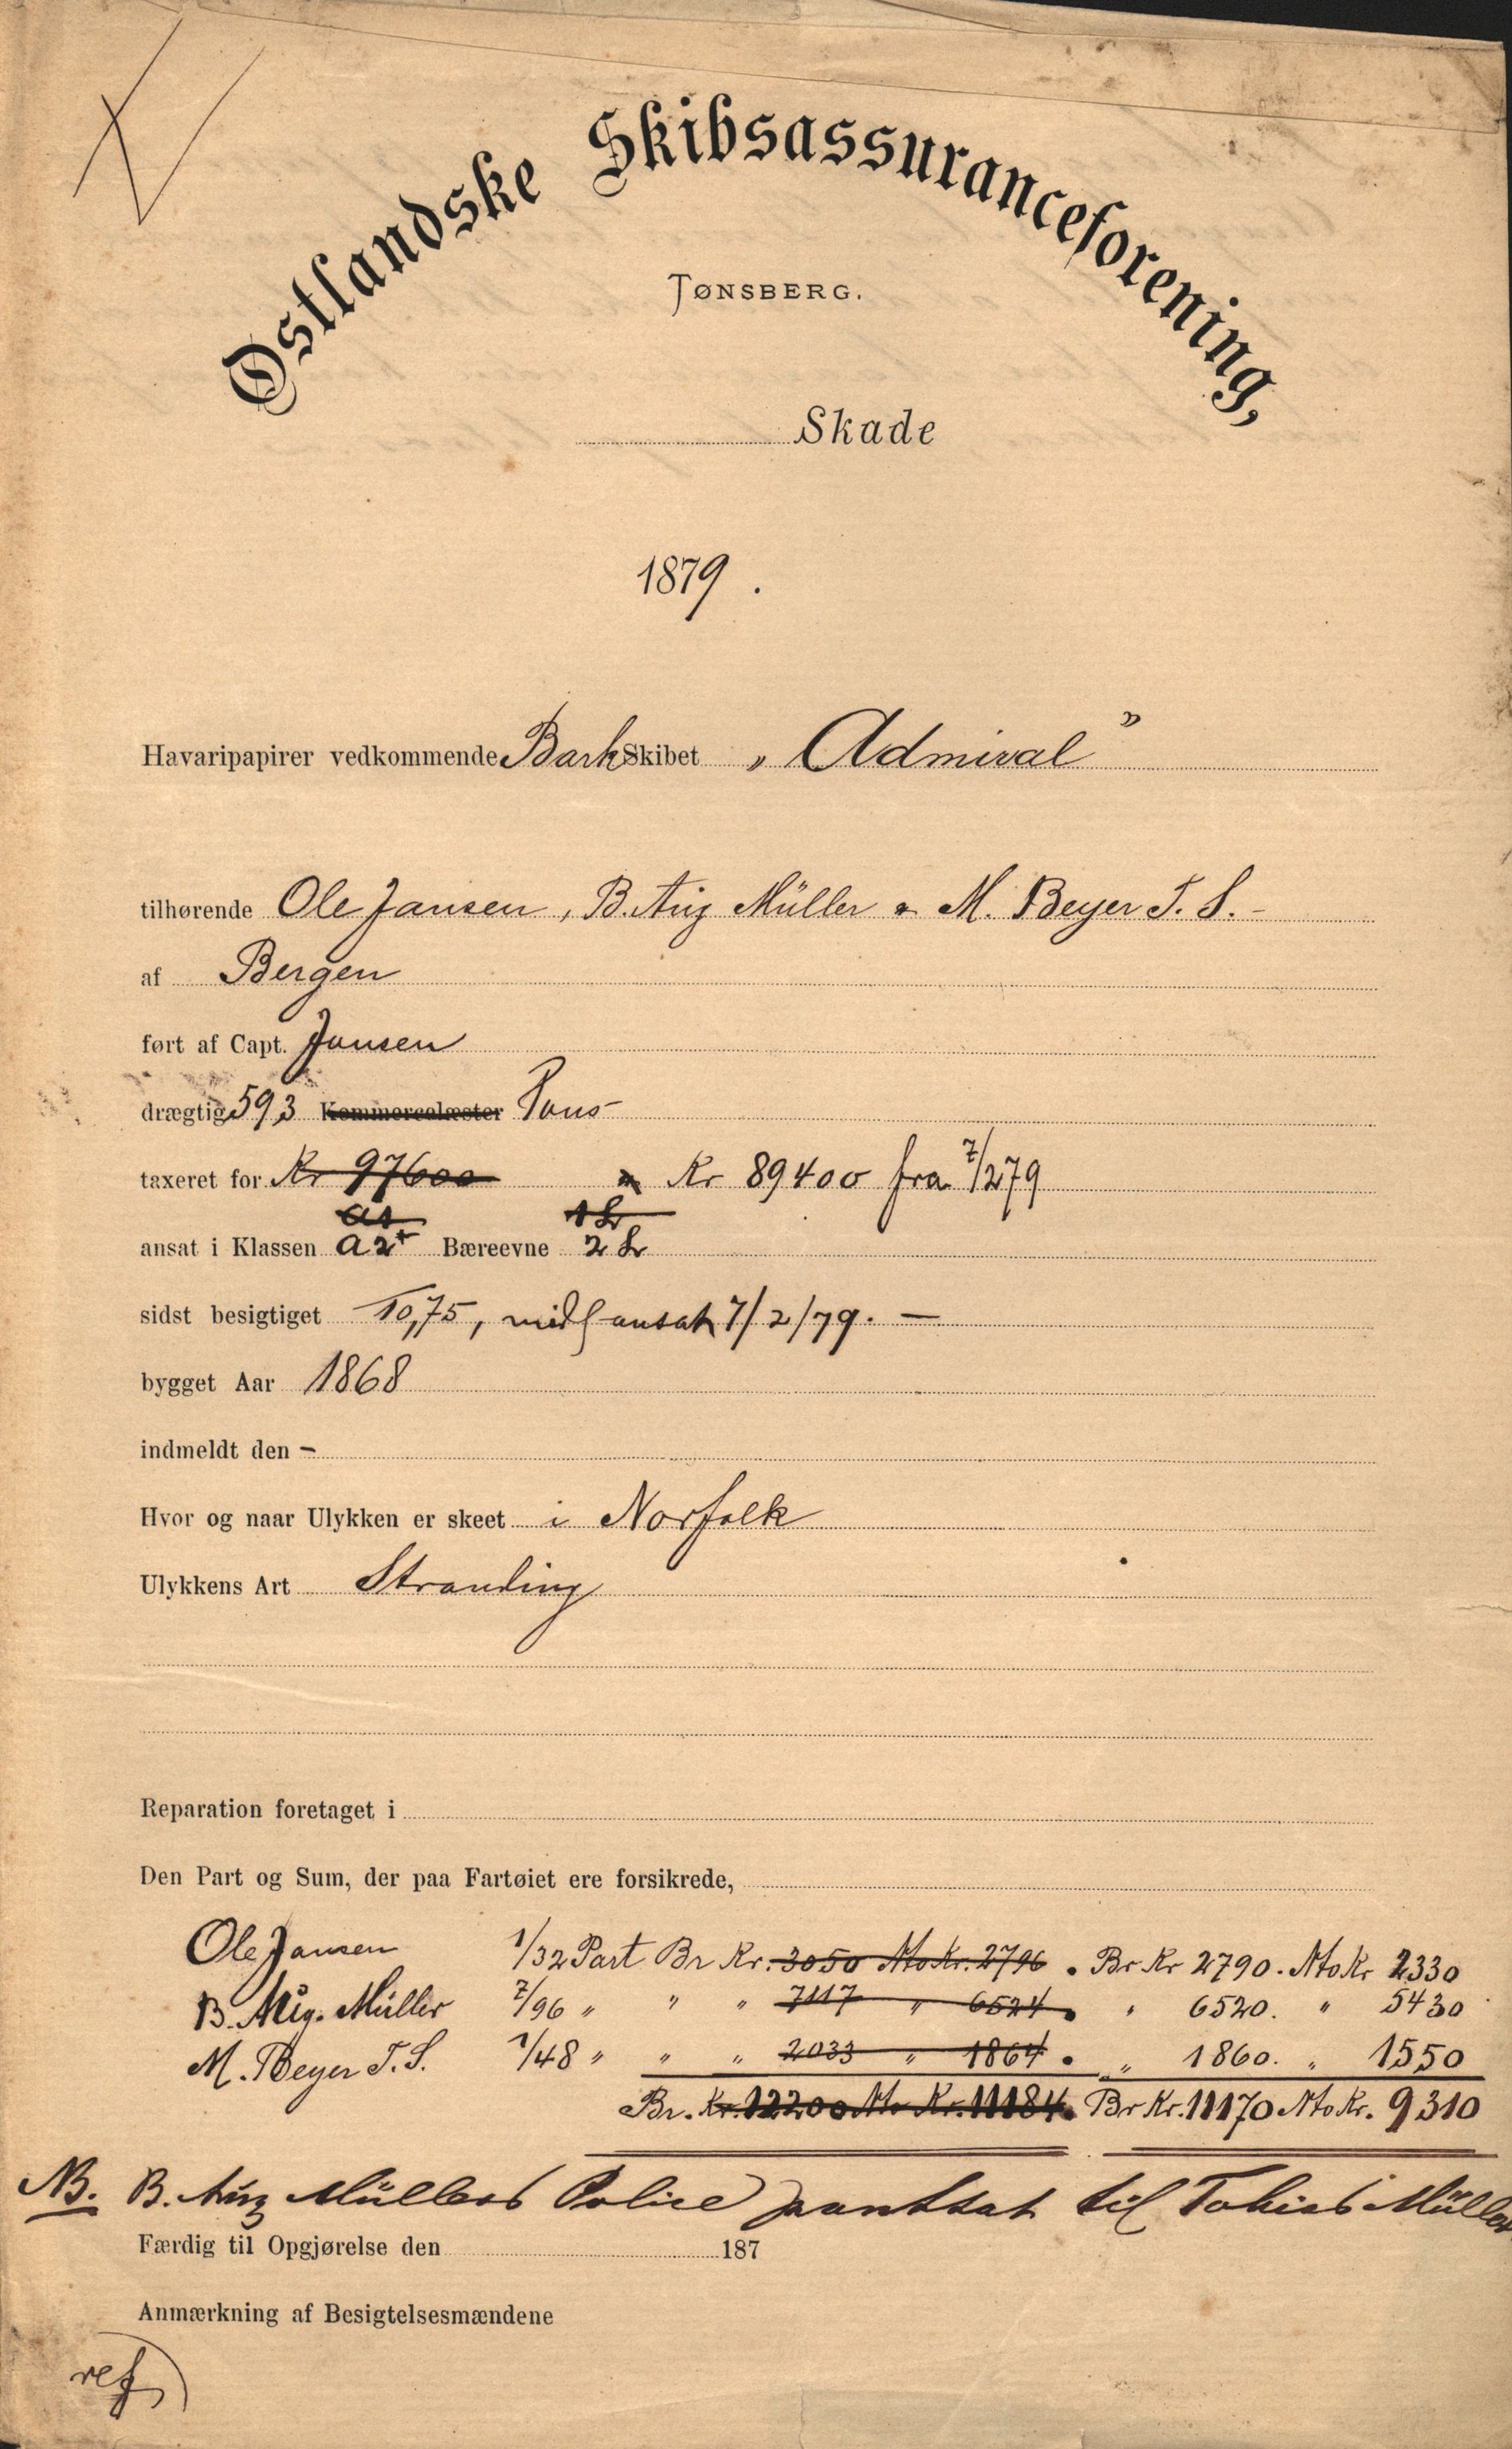 Østlandske Skibsassuranceforening,
TØNSBERG.
Skade
1879.
Havaripapirer vedkommende Bark Skibet „Admiral”
tilhørende Ole Jansen, B. Aug Müller & M. Beyer T. S. -
af Bergen
ført af Capt. Jansen
drægtig 593 Kommercelæster Tons
taxeret for Kr 97600 Kr 89400 fra 7/279
A1 1 L
ansat i Klassen A2+ Bæreevne 2 L
sidst besigtiget 10,75, ansat 7/2/79. —
bygget Aar 1868
indmeldt den -
Hvor og naar Ulykken er skeet i Norfolk
Ulykkens Art Stranding
Reparation foretaget i
Den Part og Sum, der paa Fartøiet ere forsikrede,
Ole Jansen 1/32 Part Br Kr. 3050 Nto Kr. 2796. Br Kr 2790. Nto Kr 2330
B. Aug. Müller 7/96 „ „ „ 7117 „ 6524. „ 6520. „ 5430
M. Beyer T. S. 1/48 „ „ „ 2033 „ 1864. „ 1860. „ 1550
Br. Kr. 12200 Nto Kr. 11184. Br Kr. 11170 Nto Kr. 9310
NB. B. Aug Müllers Police pantsat til Tobias Müller
Færdig til Opgjørelse den 187
Anmærkning af Besigtelsesmændene
ref